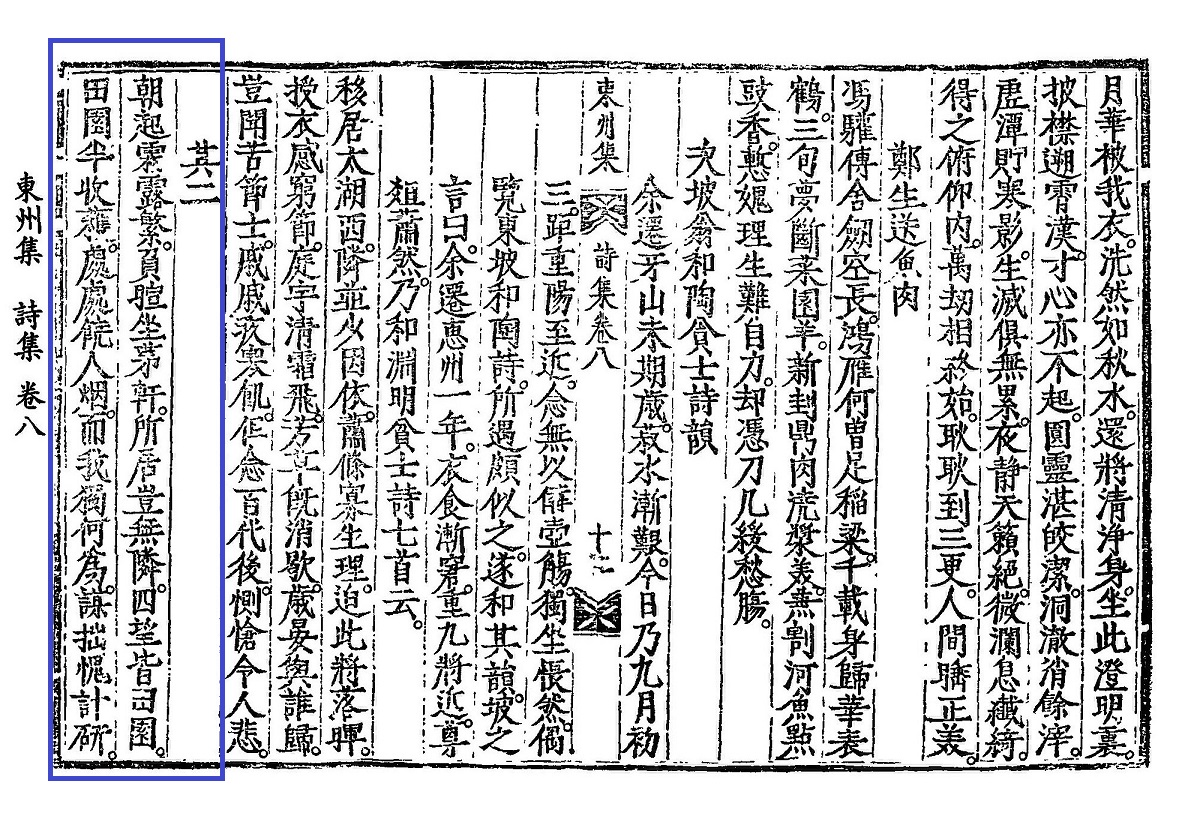 月華被我衣。洗然如秋水。還將清淨身。坐此澄明裏。
披襟遡霄漢。才心亦不起。圓靈湛皎潔。洞澈消餘滓。
虛潭貯寒影。生滅俱無累。夜静天籟絕。微瀾息纖綺。
得之俯仰內。萬刼相終始。耿耿到三更。人間睡正美。
鄭生送魚肉
馮驩傳舍劒空長。鴻雁何曾足稻粱。千載身歸華表
鶴。三旬夢斷菜園羊。新封鼎肉澆漿美。無割河魚點
豉香。慙愧理生難自力。却憑刀几緩愁膓。
次坡翁和陶貧士詩韻
余遷牙山未期歲。菽水漸艱。今日乃九月初
三。距重陽至近。念無以僻壺觴。獨坐悵然。偶
覽東坡和陶詩。所遇頗似之。遂和其韻。坡之
言曰。余遷惠州一年。衣食漸窘。重九將近。尊
爼蕭然。乃和淵明貧士詩七首云。
移居太湖西。隣並少因依。蕭條寡生理。迫此將落暉。
授衣感窮節。庭宇清霜飛。芳草旣消歇。歲晏與誰歸。
豈聞苦節士。戚戚孩寒飢。作念百代後。惻愴令人悲。
其二
朝起霜露繁。負暄坐茅軒。所居豈無隣。四望皆田園。
田園半收穫。處處饒人烟。而我獨何爲。謀拙愧計研。
東州集
詩集卷八
十二
東州集 詩集 卷八